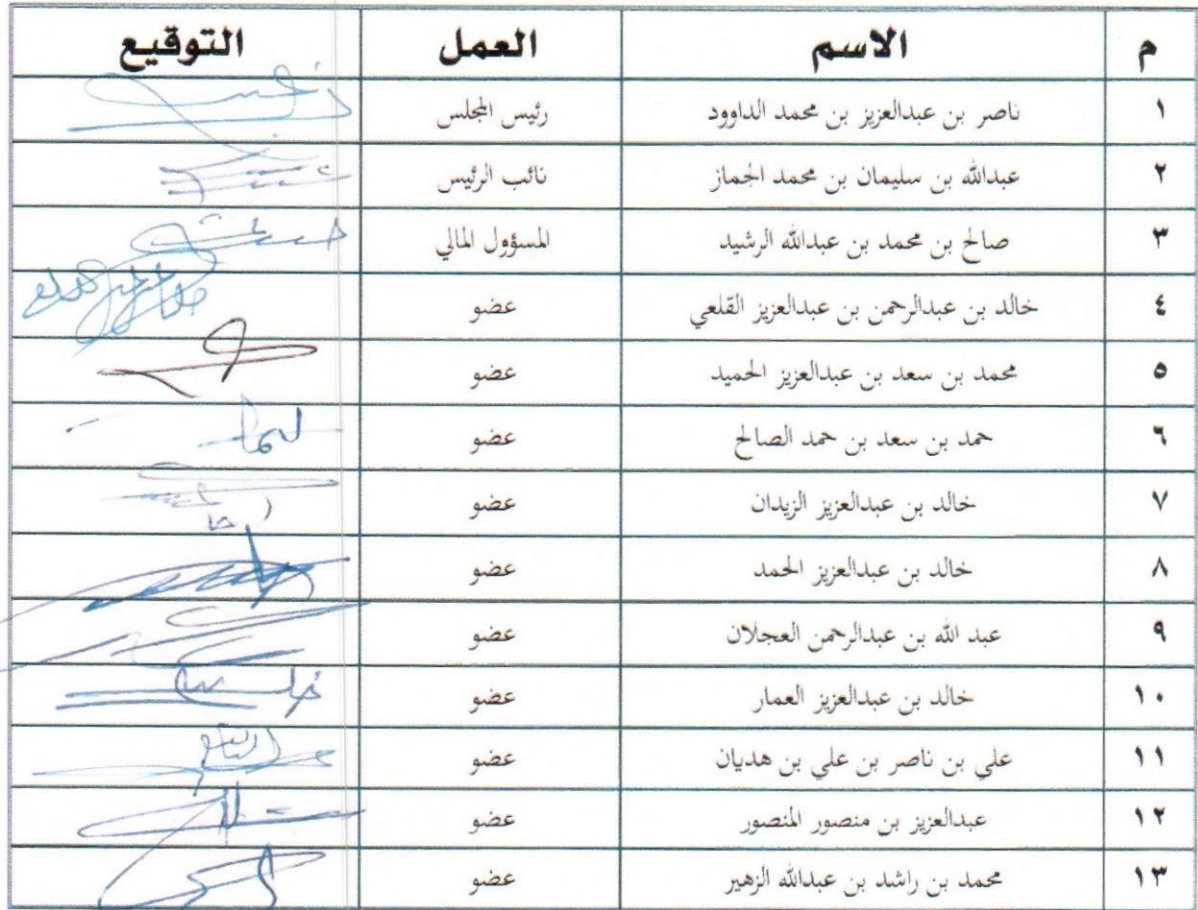 م الاسم العمل التوقيع
١ ناصر بن عبدالعزيز بن محمد الداوود رئيس المجلس
٢ عبدالله بن سليمان بن محمد الجماز نائب الرئيس
٣ صالح بن محمد بن عبدالله الرشيد المسؤول المالي
٤ خالد بن عبدالرحمن بن عبدالعزيز القلعي عضو
٥ محمد بن سعد بن عبدالعزيز الحميد عضو
٦ حمد بن سعد بن حمد الصالح عضو
٧ خالد بن عبدالعزيز الزيدان عضو
٨ خالد بن عبدالعزيز الحمد عضو
٩ عبد الله بن عبدالرحمن العجلان عضو
١٠ خالد بن عبدالعزيز العمار عضو
١١ علي بن ناصر بن علي بن هديان عضو
١٢ عبدالعزيز بن منصور المنصور عضو
١٣ محمد بن راشد بن عبدالله الزهير عضو